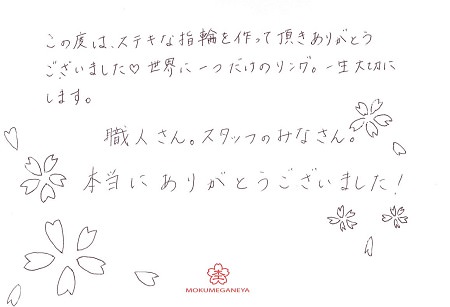 この度は、ステキな指輪を作って頂きありがとう
ございました♡世界に一つだけのリング。一生大切に
します。
職人さん。スタッフのみなさん。
本当にありがとうございました！
MOKUMEGANEYA